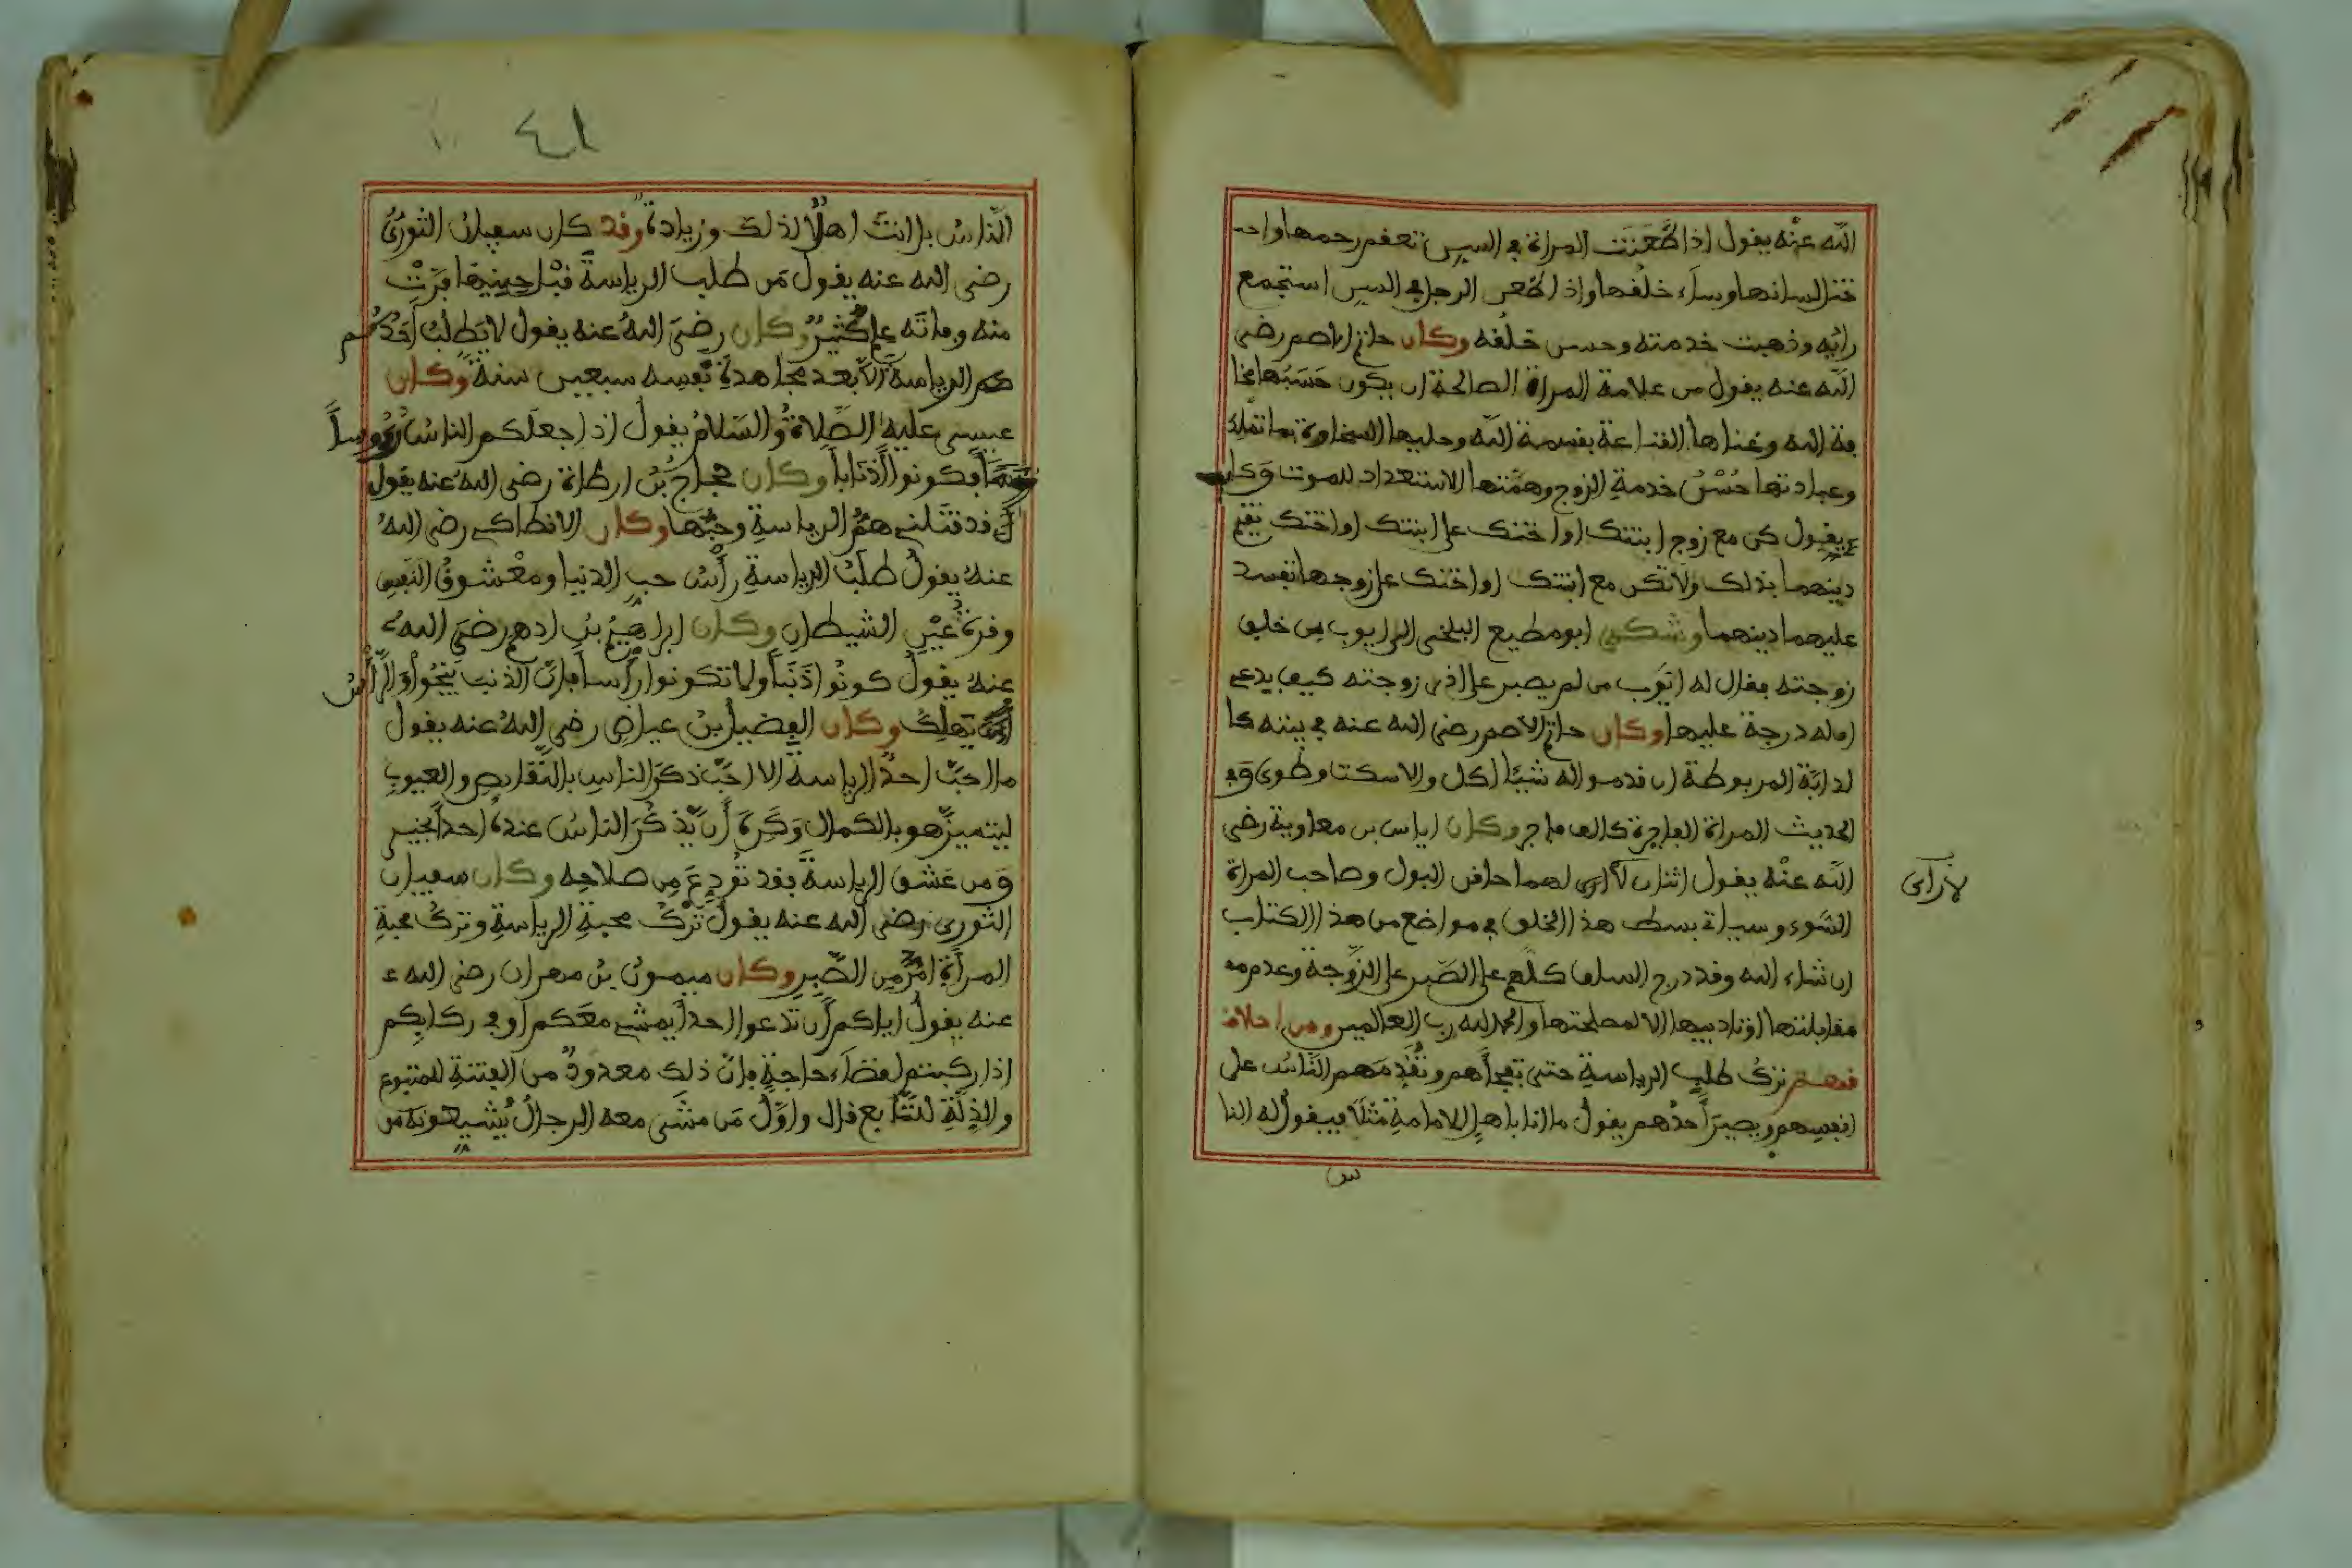 الله عنه يقول اذا طَعَنَت المراة في السن تعقم رحمها واحـ
ختل لسانها وساء خلقها واذا طعن الرجل في السن استجمع
رايه وذهبت خدمته وحسن خلقه وكان حاتم الاصم رضي
الله عنه يقول من علامة المراة الصالحة ان يكون حَسَبُها مخا
فة الله وغناها القناعة بقسمة الله وحليها السخاوة بما تملك
وعبادتها حُسْنُ خدمة الزوج وهمّتها الاستعداد للموت وَكان
يقول كن مع زوج ابنتك او اختك على ابنتك او اختك تقم
دينهما بذلك ولا تكن مع ابنتك او اختك على زوجها تفسد
عليهما دينهما وشكى ابو مطيع البلخى الى ايوب بن خلف
زوجته فقال له ايّوب من لم يصبر على اذى زوجته كيف يدعى
ان له درجة عليها وكان حاتم الاصم رضي الله عنه في بيته كا
لدابّة المربوطة ان قدموا له شيئا اكل والا سكت وطوى وَفي
الحديث المراة الفاجرة كالف فاجر وكان اياس بن معاوية رضي
الله عنه يقول اثنان لا ارى لهما حافن البول وصاحب المراة
لا رأى
السَّوء وسياتي بسط هذا الخلق في مواضع من هذا الكتاب
ان شاء الله وقد درج السلف كلّهم على الصّبر على الزّوجة وعدم مـ
مقابلتها او تاديبها الا لمصلحتها والحمد لله رب العالمين ومن اخلاقـ
فهم تركُ طلبِ الرياسةِ حتى تفجأهم وتُقدّمَهم النّاسُ على
انفسِهم ويصيرَ احدُهم يقول ما انا باهلٍ للامامةِ مَثَلًا فيقولُ له النا
س
٤١
النّاسُ بل انتَ اهلٌ لذلك وزيادة وقد كان سفيان الثورىُّ
رضي الله عنه يقول مَن طلب الرياسةَ قبْل حينِها فرّتْ
منه وفاته علم كثيرٌ وكان رضيَ اللهُ عنه يقول لا يَطلبُ احدُكم
هم الرياسةَ الّا بعد مجاهدةِ نفسِه سبعين سنة وكان
عيسى عليه الصّلاة والسّلامُ يقول اذا جعلَكم الناسُ رُؤوساً
فكونوا اَذنَاباً وكان حجاجُ بْنُ ارطاة رضي الله عنه يقول
قد قتَلني همُّ الرياسةِ وحبُّها وكان الانطاكي رضي اللهُ
عنهُ يقولُ طلَبُ الرياسةِ رأسُ حبِ الدنيا ومعْشوقُ النفسِ
وقرةُ عيْنِ الشيطان وكان ابراهيمُ بنُ ادهم رضيَ اللهُ
عنهُ يقول كونُوا ذَنَباً ولا تكونوا رأساً فإنّ الذنب ينجُوا وَالرّأسُ
يَهلِكُ وكان الفضيلُ بنُ عياض رضي اللهُ عنه يقول
ما احبَّ احدٌ الرياسةَ الا احَبّ ذكرَ الناسِ بالنّقايصِ والعيوبِ
ليتميزَ هو بالكمال وَكَرِهَ أن يّذكُرَ الناسُ عندَهُ احداً بخير
وَمن عَشقَ الرياسةَ فقد تُوُدِعَ مِن صلاحِه وكان سفيان
الثورى رضي الله عنه يقول تَرْكُ محبةِ الرياسةِ وتركُ محبةِ
المرأةِ امَرُّ مِن الصَّبِرِ وكان ميمونُ بنُ مهران رضي الله
عنه يقولُ اياكم أن تدعوا احداً يمشي معَكم او في ركابِكم
اذا ركبتم لقضاءِ حاجةٍ فإنّ ذلك معدودٌ من الفتنةِ للمتبوع
والذلةِ للتّابع قال واوّلُ مَن مشَى معه الرجالُ يُشيعونَه من